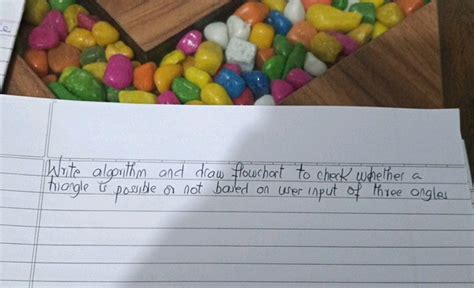 Write algorithm and draw flowchart to check whether a
triangle is possible or not based on user input of three angles